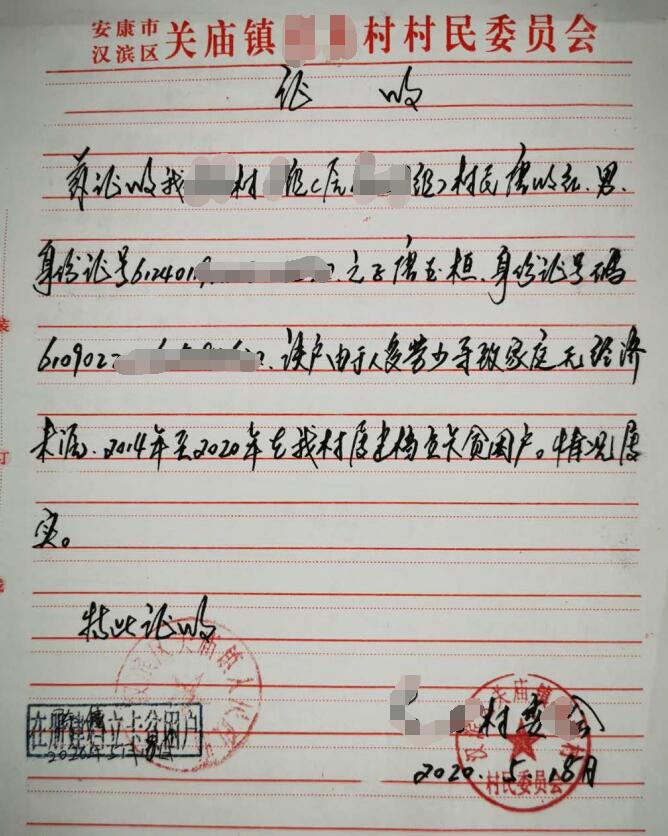 安康市
汉滨区 关庙镇 村村民委员会
证 明
兹证明我 村 组(原 组)村民唐明红、男、
身份证号612401 之子唐玉桓、身份证号码
6109022 该户由于人多劳少导致家庭无经济
来源、2014年至2020年在我村属建档立卡贫困户。情况属
实。
特此证明
汉滨区关庙镇人民政府
在册建档立卡贫困户
村委会
汉滨区关庙镇 村
村民委员会
2020.5.18月